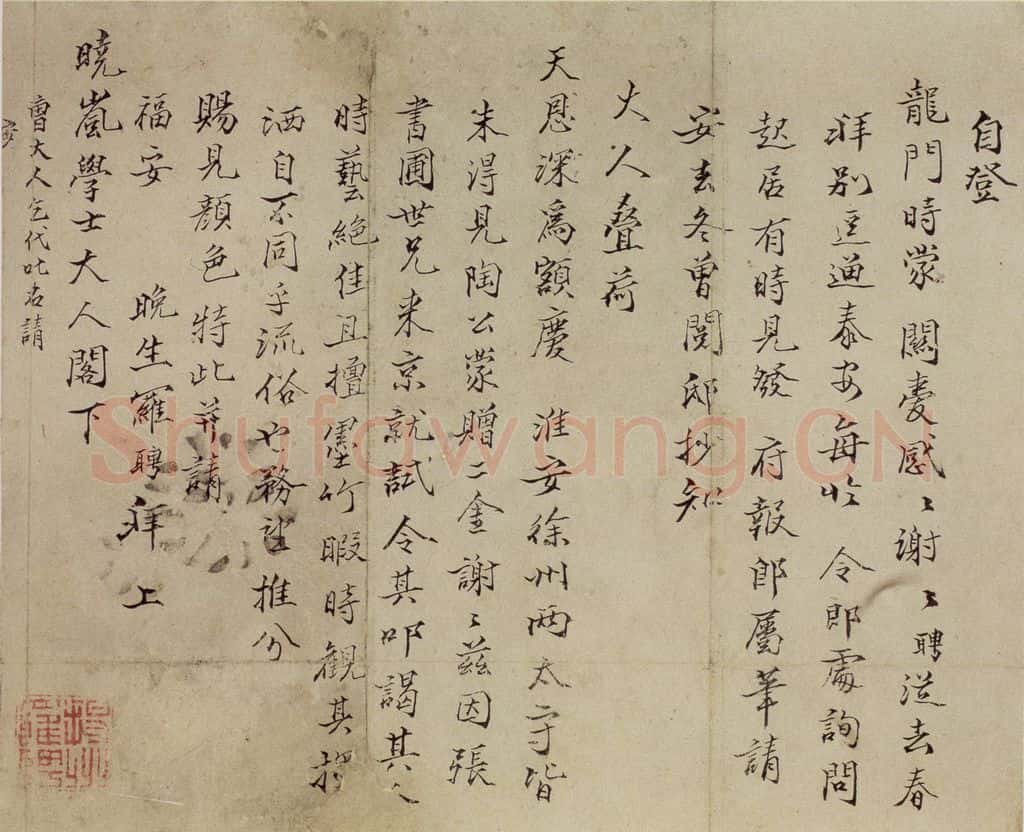 自登
龍門時蒙 關愛感〻謝〻聘從去春
拜別逕過泰安每收 令郎處詢問
起居有時見發 府報郎屬筆請
安去冬曾閱邸抄知
大人叠荷
天恩深為額慶 淮安徐州兩太守皆
未淂見陶公蒙贈二金謝〻兹因張
書圃世兄来京就試令其叩謁其人
時藝絕佳且擅墨竹暇時觀其揮
洒自不同乎流俗也務望推分
賜見顏色特此并請
福安 晚生羅聘拜上
曉嵐學士大人閣下
曹大人乞代叱名請
安
Shufawang.CN
揚州羅聘